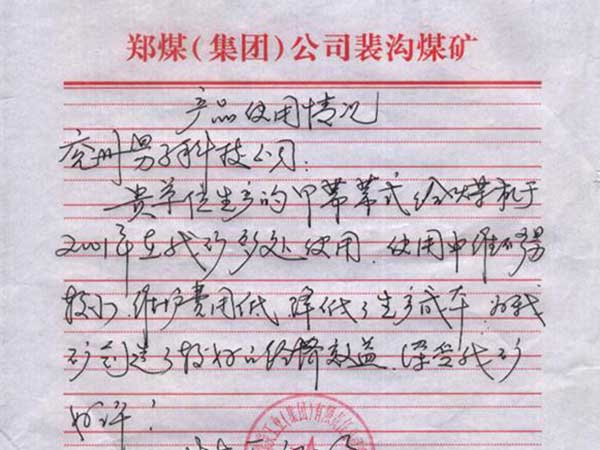 郑煤(集团)公司裴沟煤矿
产品使用情况
兖州男子科技公司:
贵单位生产的甲带带式给煤机于
2001年在我矿多处使用.使用中维修量
较小.维护費用低.降低了生产成本.为我
矿创造了较好的经济效益.深受我矿
好评!
(集团)有限责任